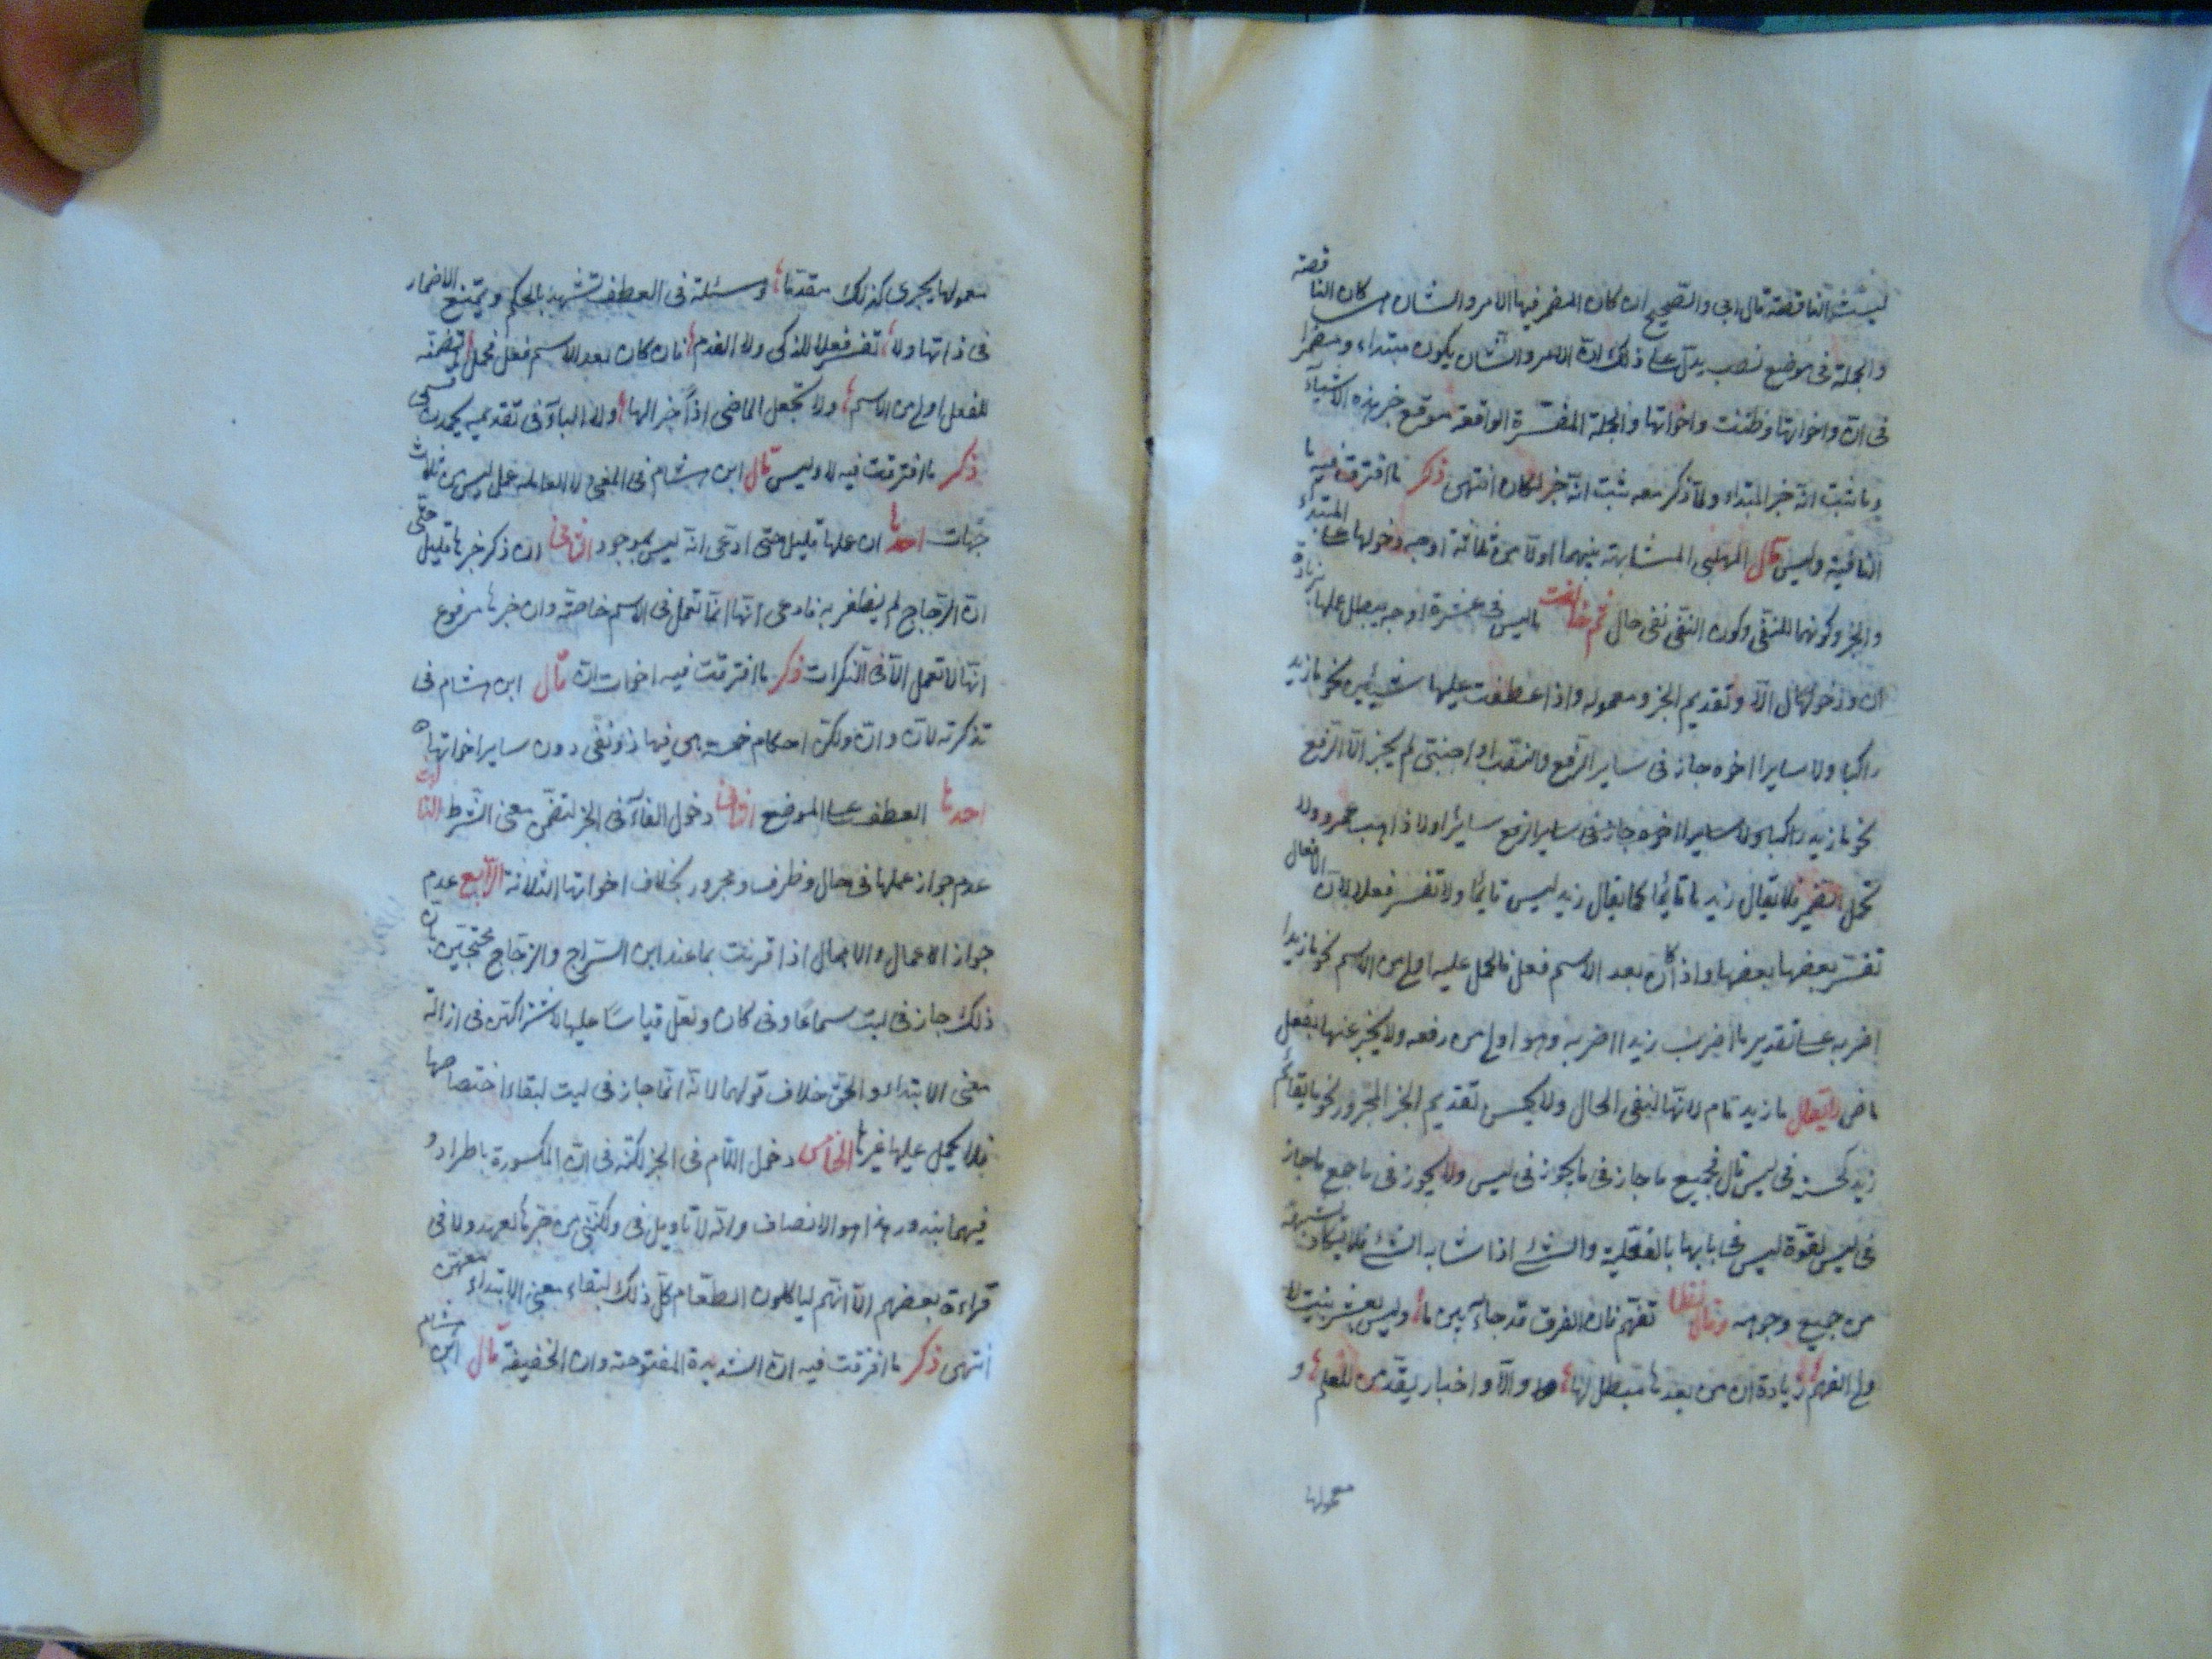 ليست الناقصة قال ابي والصحيح ان كان المضمر فيها الامر والشان هي كان الناقصة
والجملة فى موضع نصب يدل على ذلك ان الامر والشان يكون مبتداء ومضمرا
فى ان واخواتها وظننت واخواتها والجملة المفسرة الواقعة موقع خبر هذه الاشياء
وما ثبت انه خبر المبتداء ولما ذكر معه ثبت انه خبر لكان انتهى ذكر ما افترقت فيه ما
النافية وليس قال المهلبى المشابهة بينهما اولا من ثلاثة اوجه دخولها على المبتدء
والخبر وكونهما للنفى وكون النفى نفى حال ثم خالفت ما ليس فى عشرة اوجه يبطل عملها زيادة
ان ودخول الا وتقديم الخبر ومعموله واذا عطفت عليها شيئين نحو ما زيد
راكبا ولا سايرا اخوه جاز فى ساير الرفع والنصب او اجنبى لم يجز الا الرفع
نحو ما زيد راكبا ولا سايرا اخوه جاز فى ساير الرفع سائرا ولا ذاهب عمرو ولا
تحمل الضمير فلا يقال زيد ما قائما كما يقال زيد ليس قايما ولا تفسر فعلا لان الافعال
تفسر بعضها بعضها واذا كان بعد الاسم فعل فالحمل عليه اولى من الاسم نحو ما زيدا
اضربه على تقدير ما اضرب زيدا اضربه وهو اولى من رفعه ولا يخبر عنها بفعل
ماض لا يقال ما زيد قام لانها لنفى الحال ولا يحسن تقديم الخبر المجرور نحو ما بقائم
زيد كحسنه فى ليس قال فجميع ما جاز فى ما يجوز فى ليس ولا يجوز فى ما جميع ما جاز
فى ليس لقوة ليس فى بابها بالفعلية والشئ اذا شابه الشئ فلا يكاد يشبهه
من جميع وجوهه وقال نظما تفهم فان الفرق قد جاء بين ما وليس بعشر بينت لا
ولى الفهم زيادة ان من بعدها مبطل لها والا واخبار يقدمن للعلم و
معمولها
معمولها يجرى كذلك مقدما ومسئلة فى العطف تشهد بالحكم ويمتنع الاضمار
فى ذاتها ولا تفسر فعلا للذكى ولا الفدم فان كان بعد الاسم فعل فحمل ما تضمنه
للفعل اولى من الاسم ولا تجعل الماضى اذا خبرا لها ولا الباء فى تقديمه يحمدن
ذكر ما افترقت فيه لا وليس قال ابن هشام فى المغنى لا العاملة عمل ليس من ثلاث
جهات احدها ان عملها قليل حتى ادعى انه ليس بموجود الثانى ان ذكر خبرها قليل حتى
ان الزجاج لم يظفر به فادعى انها انما تعمل فى الاسم خاصة وان خبرها مرفوع
انها لا تعمل الا فى النكرات ذكر ما افترقت فيه اخوات ان قال ابن هشام فى
تذكرته لان وان ولكن احكام خمسة هى فيها دون ساير اخواتها
احدها العطف على الموضع الثانى دخول الفاء فى الخبر لتضمن معنى الشرط الثالث
عدم جواز عملها فى حال وظرف ومجرور بخلاف اخواتها الثلاثة الرابع عدم
جواز الاعمال والاهمال اذا قرنت بما عند ابن السراج والزجاج محتجين بان
ذلك جاز فى ليت سماعا وفى كان ولعل قياسا عليها لاشتراكهن فى ازالة
معنى الابتداء والحق خلاف قولهما لانه انما جاز فى ليت لبقاء اختصاصها
فلا يحمل عليها غيرها الخامس دخول اللام فى الخبر لكنه فى ان المكسورة باطراد و
فيهما بندور هذا هو الانصاف وانه لا تاويل فى ولكننى من حبها لعميد ولا فى
قراءة بعضهم الا انهم لياكلون الطعام كل ذلك لبقاء معنى الابتداء معهن
انتهى ذكر ما افترقت فيه ان الشديدة المفتوحة وان الخفيفة قال ابن هشام